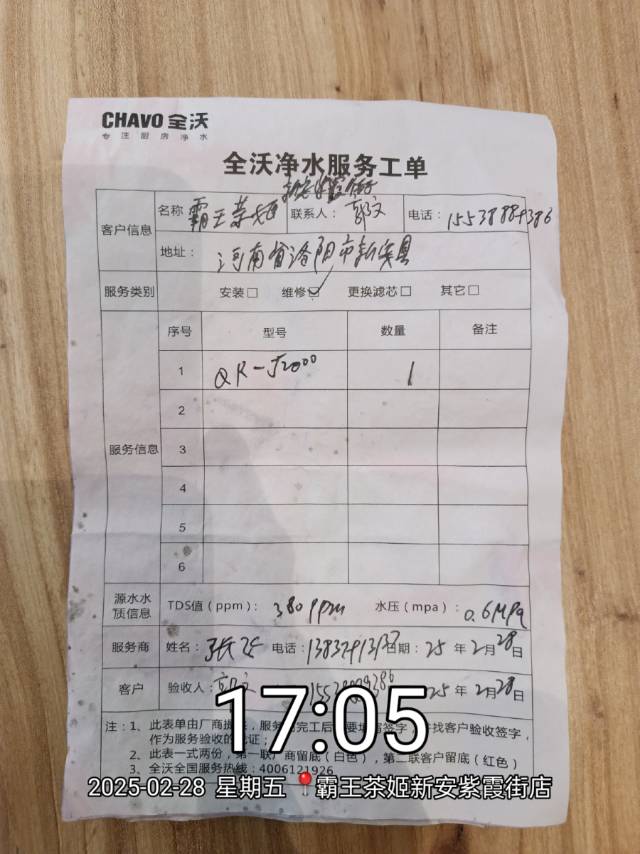 CHAVO 全沃
专注厨房净水
全沃净水服务工单
客户信息 名称 霸王茶姬 联系人： 郭文 电话：
地址： 河南省洛阳市新安县
服务类别 安装□ 维修☑ 更换滤芯□ 其它□
服务信息 序号 型号 数量 备注
1 QR-J2000 1
2
3
4
5
6
源水水质信息 TDS值（ppm）： 380ppm 水压（mpa）： 0.6MPa
服务商 姓名： 电话： 日期： 25 年 2 月 28 日
客户 验收人： 25 年 2 月 28 日
注：1、此表单由厂商提 服务 完工后 要 签字 找客户验收签字，
作为服务验收的凭证；
2、此表一式两份，第一联厂商留底（白色），第二联客户留底（红色）
3、全沃全国服务热线：4006121926
17:05
2025-02-28 星期五 霸王茶姬新安紫霞街店